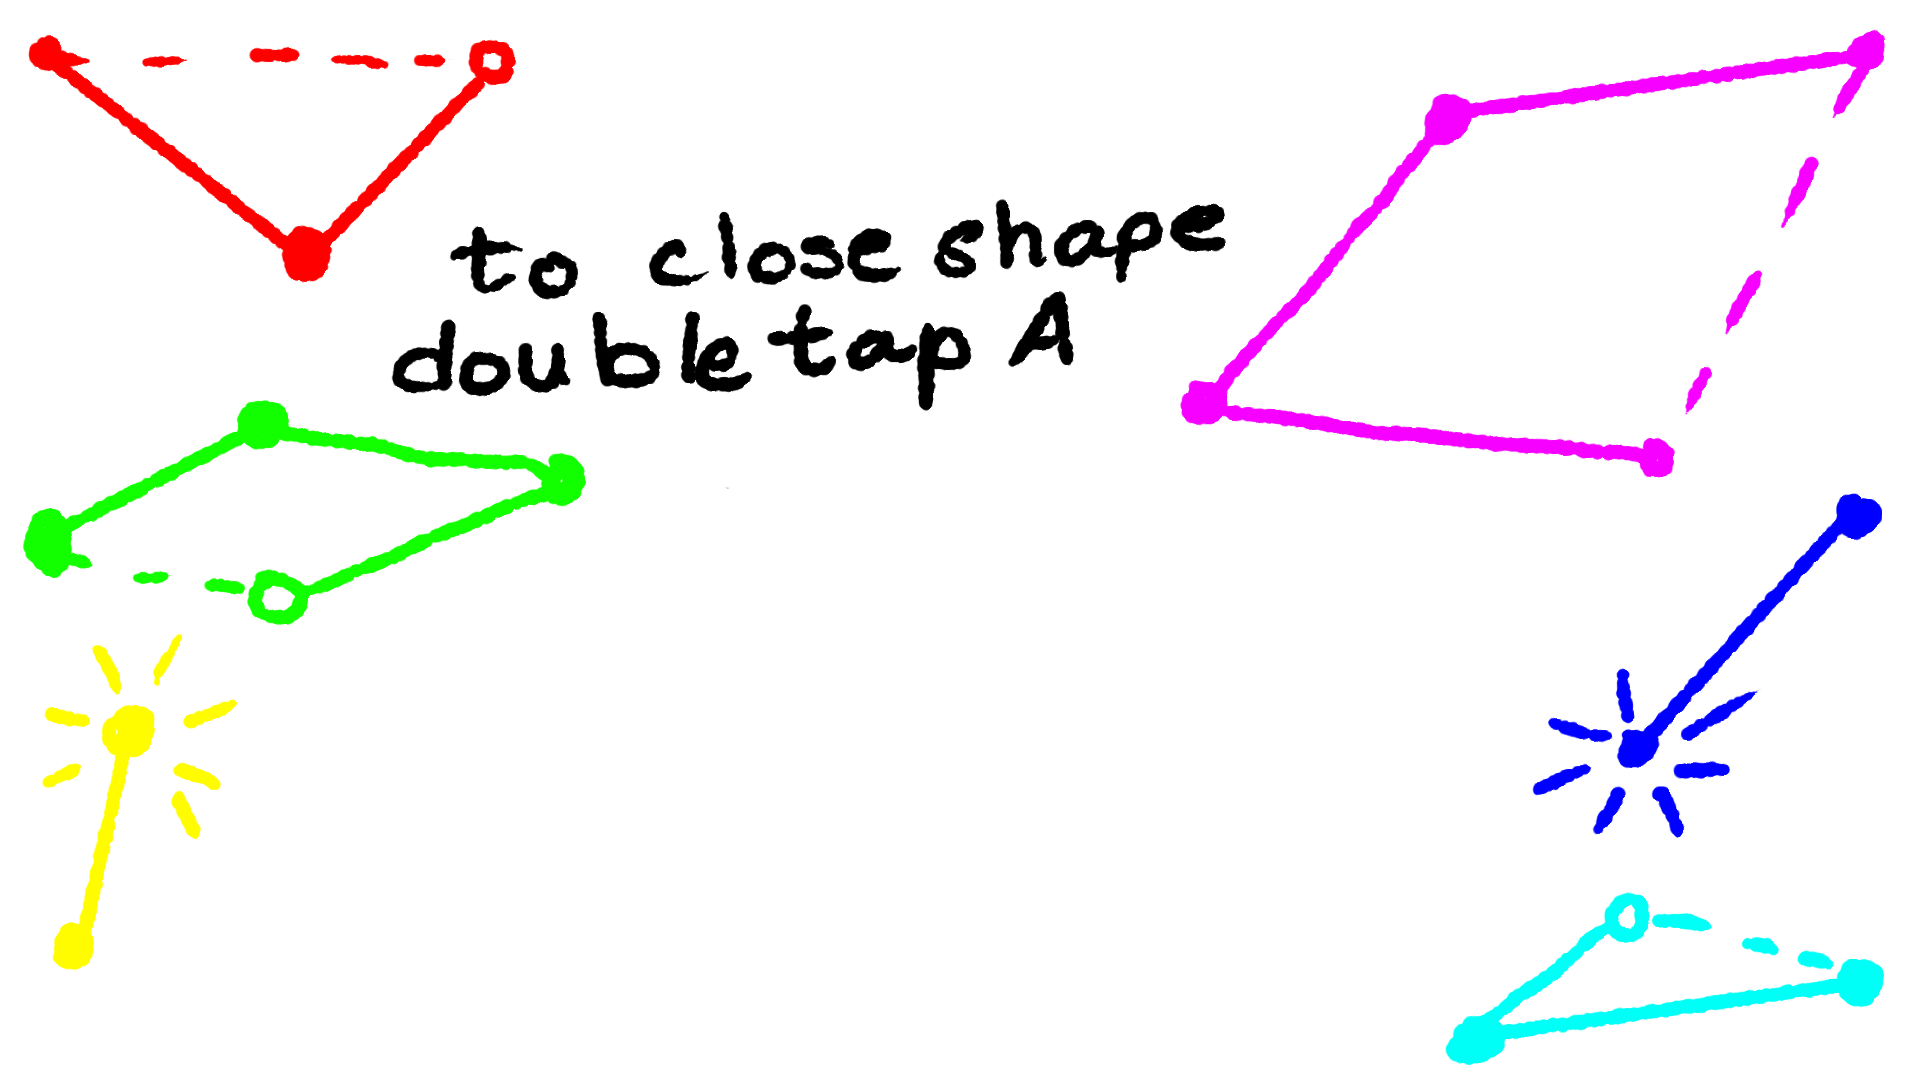 to close shape
double tap A